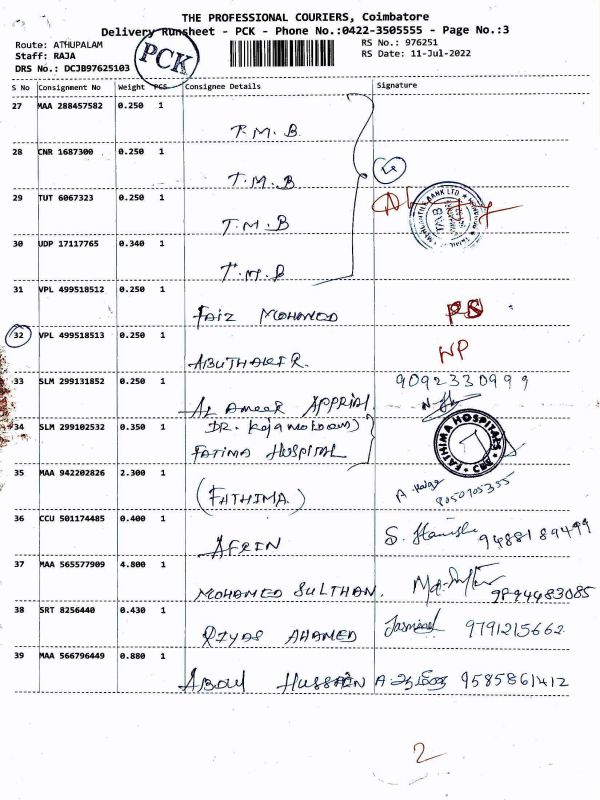 THE PROFESSIONAL COURIERS, Coimbatore
Delivery Runsheet - PCK - Phone No.:0422-3505555 - Page No.:3
Route: ATHUPALAM
RS No.: 976251
Staff: RAJA
RS Date: 11-Jul-2022
DRS No.: DCJB97625103
PCK
S No Consignment No Weight PCS Consignee Details Signature
27 MAA 288457582 0.250 1
T.M.B
28 CNR 1687300 0.250 1
T.M.B
29 TUT 6067323 0.250 1
T.M.B
30 UDP 17117765 0.340 1
T.M.B
31 VPL 499518512 0.250 1
FAIZ MOHAMED
32 VPL 499518513 0.250 1
ABUTHAKIR. NP
33 SLM 299131852 0.250 1 9092330999
AL AMEER
34 SLM 299102532 0.350 1
DR.
FATIMA HOSPITAL
FATHIMA HOSPITALS
CBE
35 MAA 942202826 2.300 1
(FATHIMA) 8050705355
36 CCU 501174485 0.400 1
AFRIN 9488189499
37 MAA 565577909 4.800 1
MOHAMED SULTHAN. 9894483085
38 SRT 8256440 0.430 1
RIYAS AHAMED 9791215662
39 MAA 566796449 0.880 1
ABDUL HUSSAIN 9585861412
2